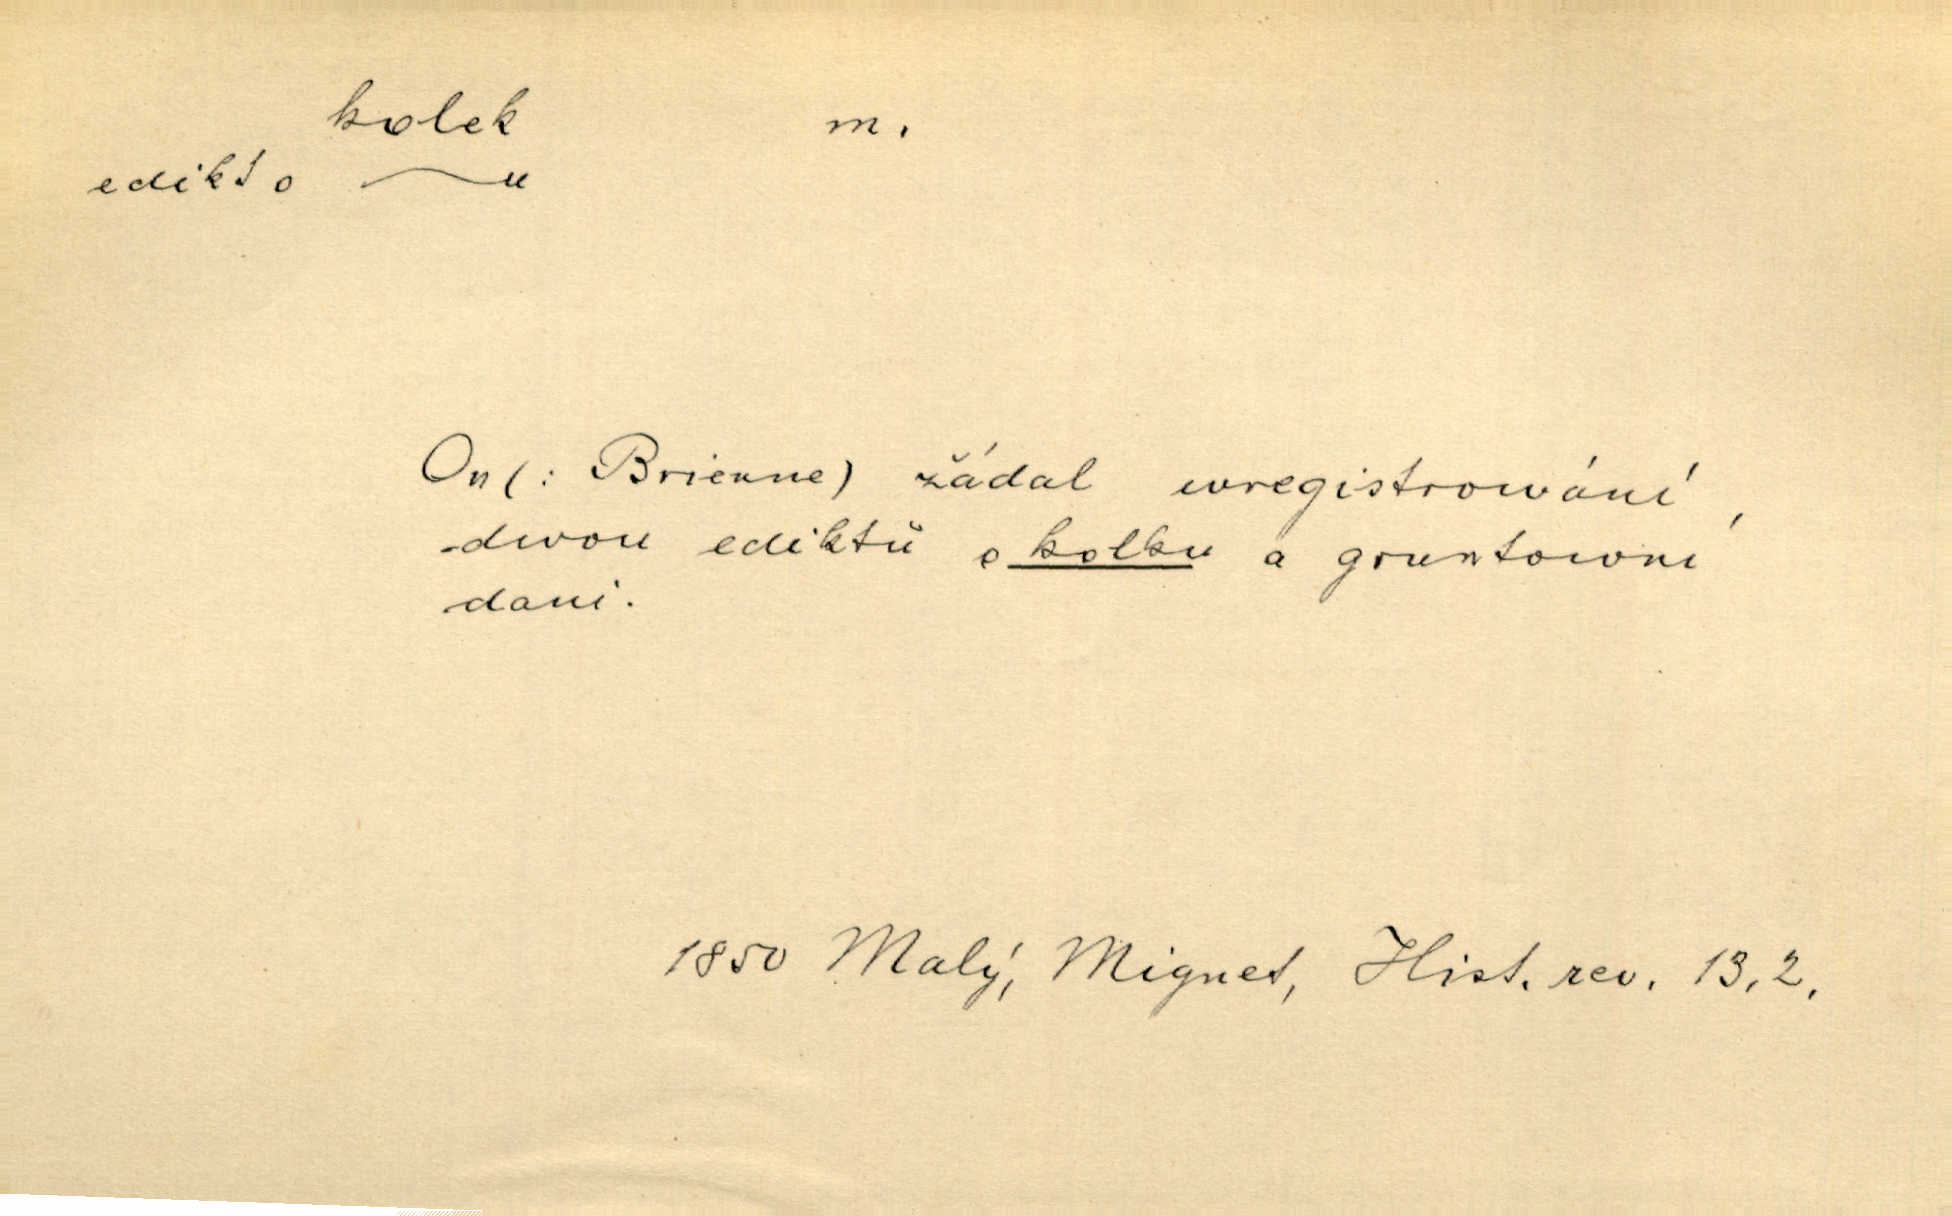 kolek m.
edikt o ~u
On (: Brienne) žádal wregistrowání,
dwou ediktů o kolku a gruntowní
dani.
1850 Malý, Mignet, Hist. rev. 13, 2.